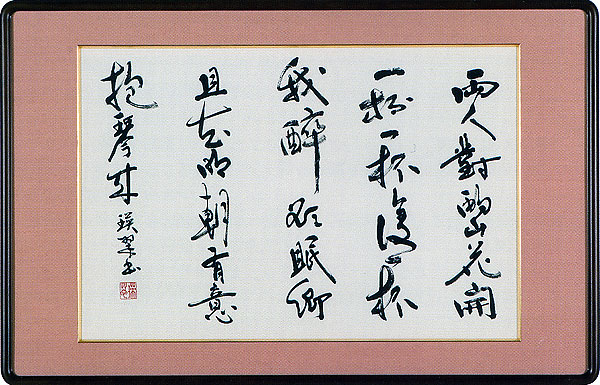 兩人對酌山花開
一杯一杯復一杯
我醉欲眠卿
且去明朝有意
抱琴來 瑛翠書